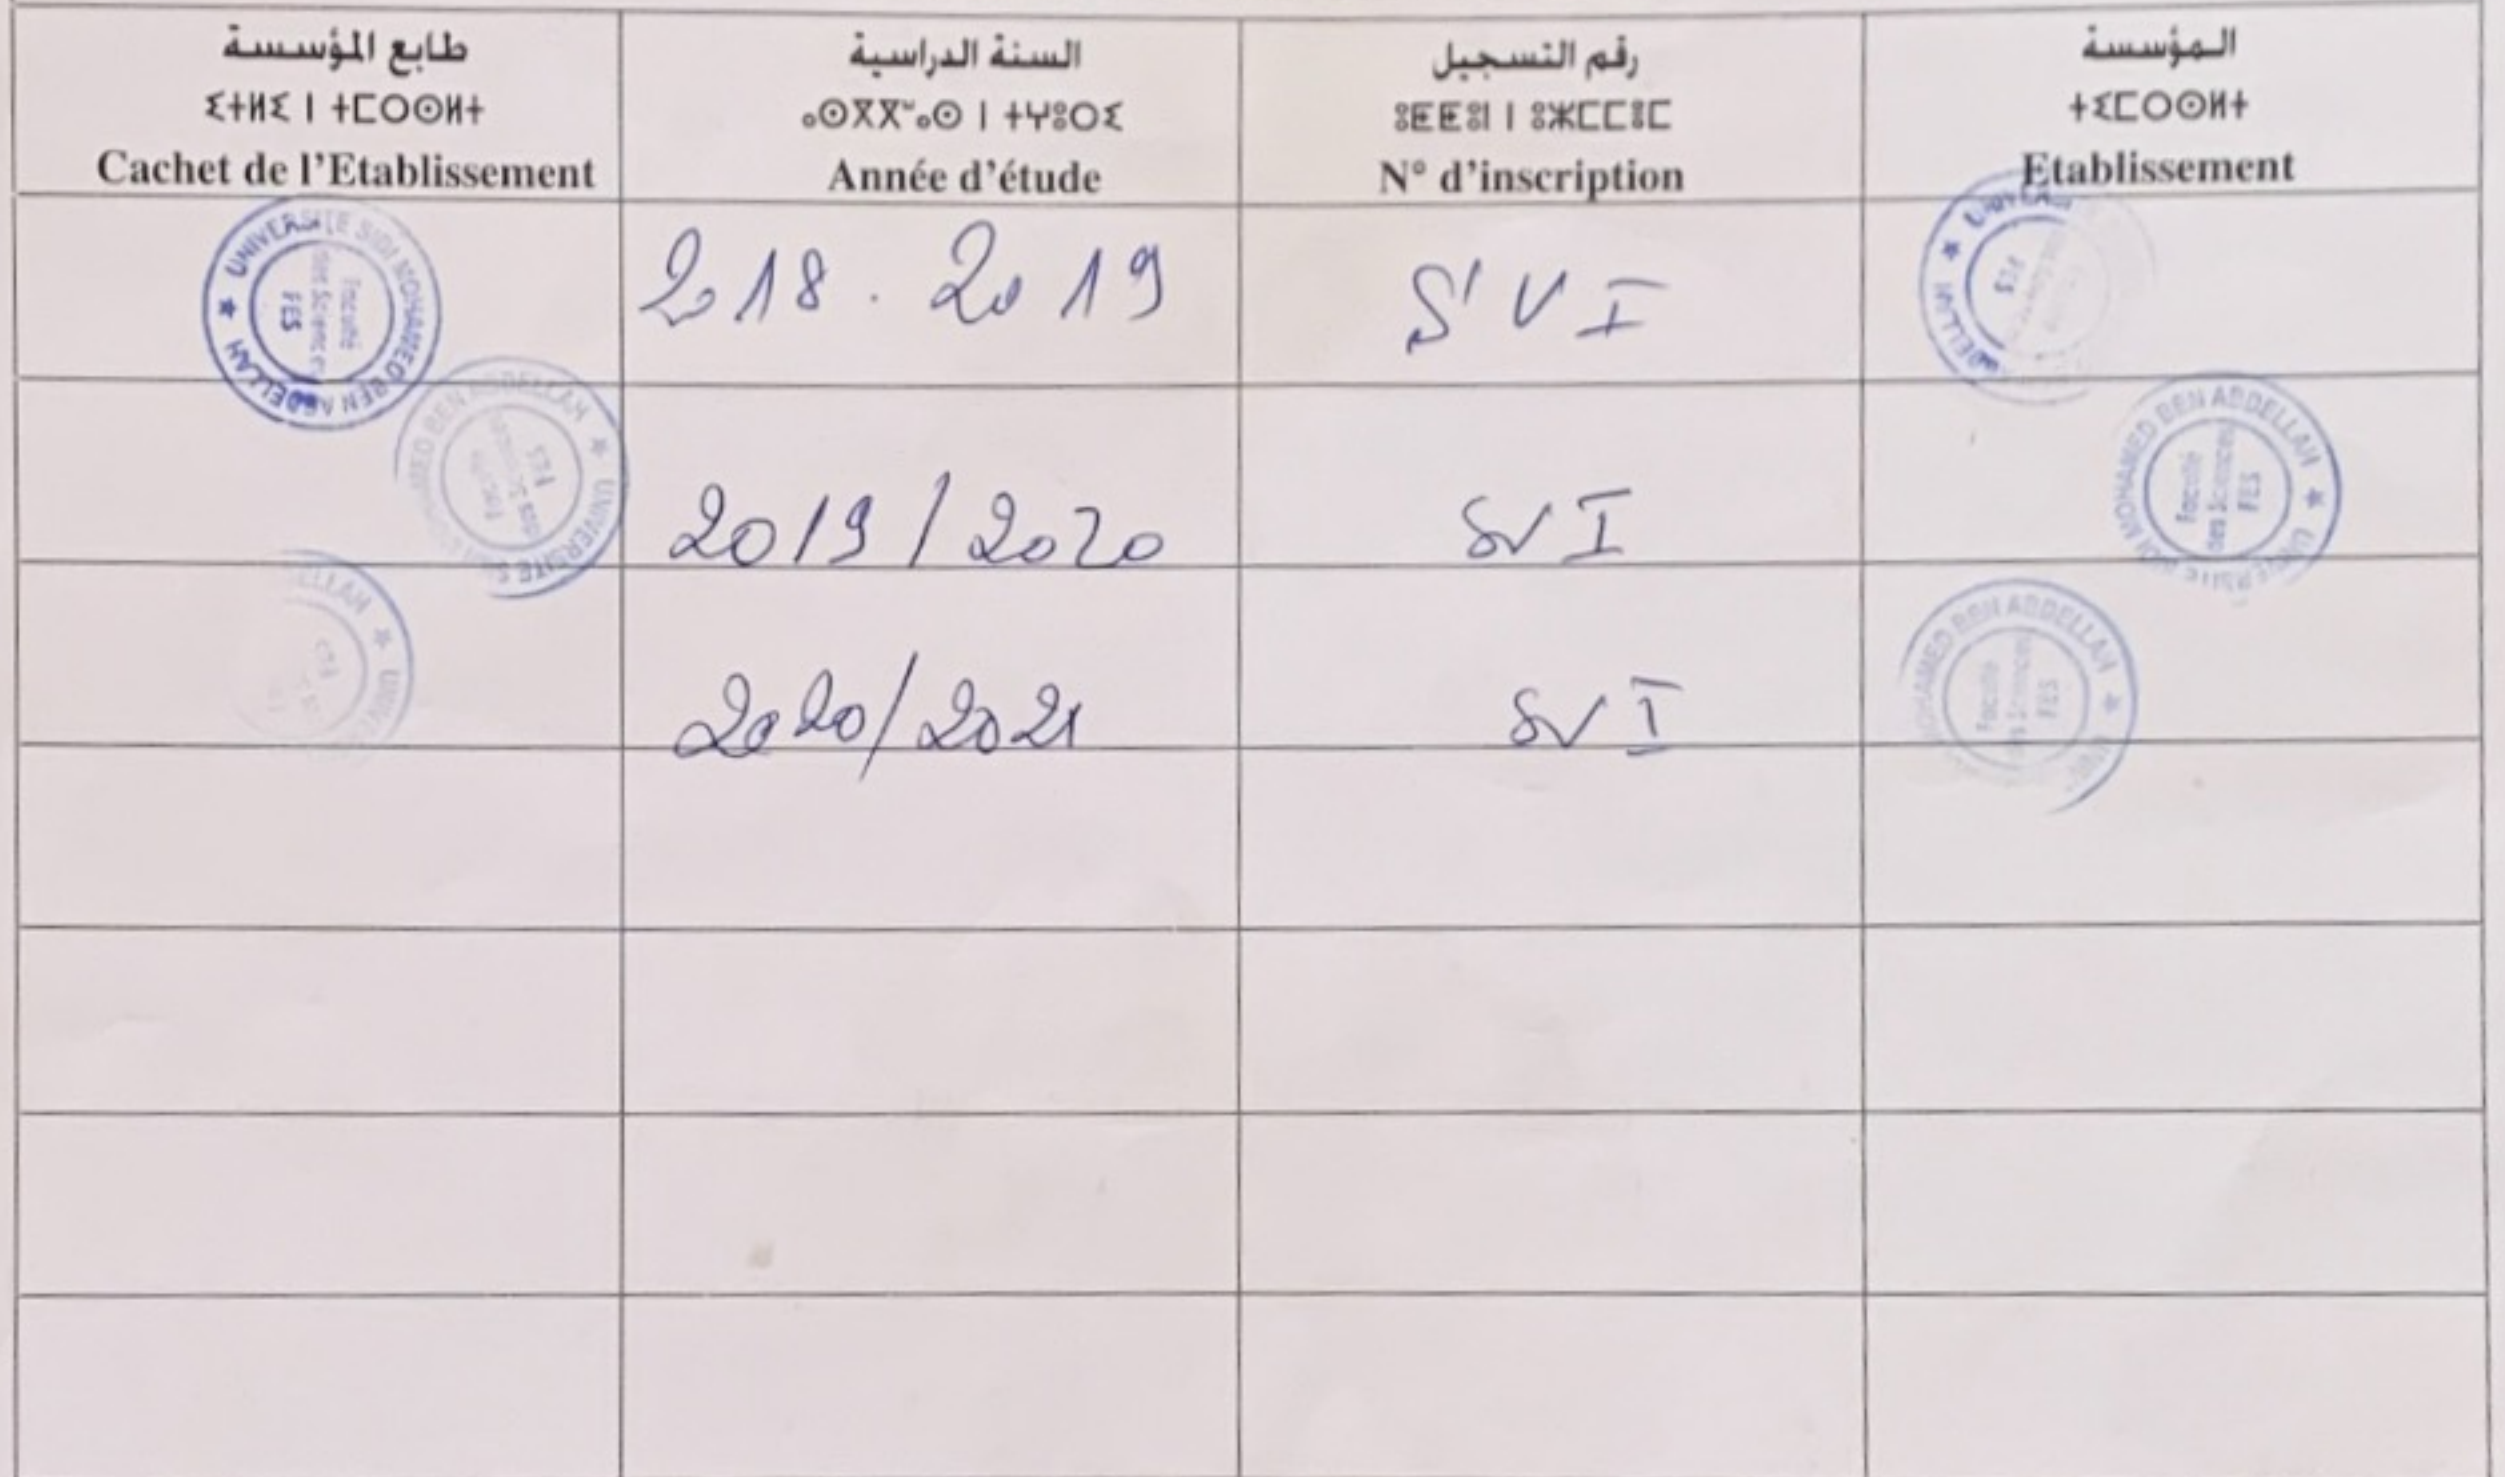 طابع المؤسسة
ⵉⵜⵍⵉ ⵏ ⵜⵎⵔⵙⵍⵜ
Cachet de l'Etablissement
السنة الدراسية
ⴰⵙⴳⴳⵯⴰⵙ ⵏ ⵜⵖⵓⵔⵉ
Année d'étude
رقم التسجيل
ⵓⵟⵟⵓⵏ ⵏ ⵓⵣⵎⵎⵓⵎ
N° d'inscription
المؤسسة
ⵜⵉⵎⵔⵙⵍⵜ
Etablissement
★ UNIVERSITE SIDI MOHAMED BEN ABDELLAH ★
Faculté
des Sciences
FES
218. 2019
SVI
★ UNIVERSITE
ABDELLAH
FES
MOHAMED BEN ABDELLAH ★ UNIVERSITE S
Faculté
des Sciences
FES
2019/2020
SVI
UNIVERSITE SIDI MOHAMED BEN ABDELLAH ★
Faculté
des Sciences
FES
ELLAH ★ UNIVE
2020/2021
SVI
MOHAMED BEN ABDELLAH ★ UNIVE
Faculté
des Sciences
FES